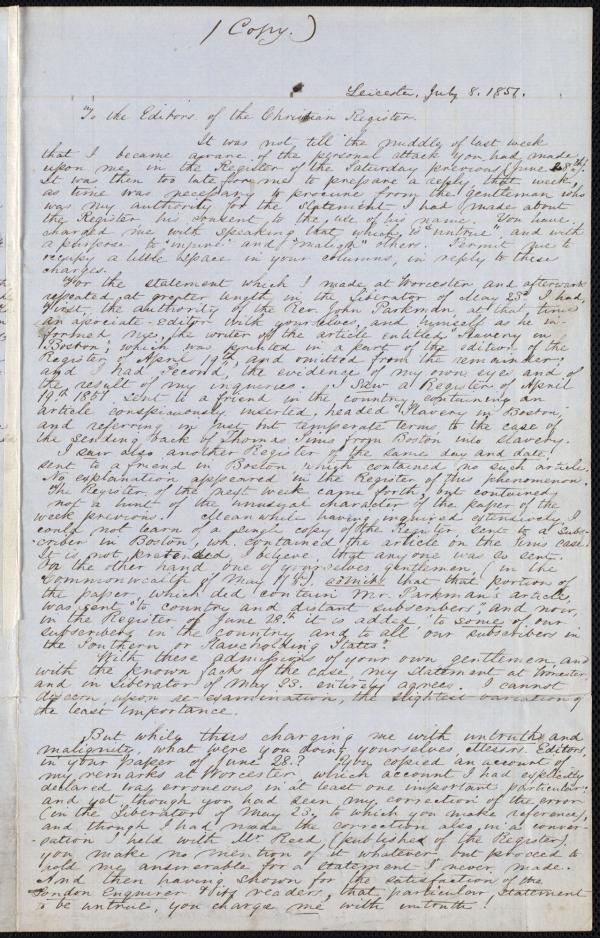 ( Copy. )
Leicester, July 8. 1851.
To the Editors of the Christian Register.
It was not till the middle of last week
that I became aware of the personal attack you had made
upon me, in the Register of the Saturday previous (June 28th).
It was then too late for me to prepare a reply that week,
as time was necessary to procure from the gentleman who
was my authority for the statement I had made about
the Register his consent to the use of his name. You have
charged me with speaking that which is "untrue" and with
a purpose to "injure" and "malign" others. Permit me to
occupy a little space in your columns, in reply to these
charges.
For the statement which I made at Worcester, and afterwards
repeated at greater length in the Liberator of May 23d, I had,
First, the authority of the Rev. John Parkman, at that time
an associate-editor with yourselves, and himself as he in-
formed me, the writer of the article entitled Slavery in
Boston, which was printed in a part of the edition of the
Register of April 19th, and omitted from the remainder;
and I had second, the evidence of my own eyes and of
the result of my inquiries. I saw a Register of April
19th 1851 sent to a friend in the country, containing an
article conspicuously inserted, headed "Slavery in Boston,"
and referring in just but temperate terms to the case of
the sending back of Thomas Sims from Boston into slavery.
I saw also another Register of the same day and date,
sent to a friend in Boston, which contained no such article.
No explanation appeared in the Register of this phenomenon.
The Register of the next week came forth, but contained
not a hint of the unusual character of the paper of the
week previous. Meanwhile having inquired extensively, I
could not learn of a single copy of the Register sent to a Subs-
criber in Boston, wh. contained the article on the Sims case.
It is not pretended, I believe, that any one was so sent.
On the other hand one of yourselves gentlemen, (in the
Commonwealth of May ) admits that that portion of
the paper, which did contain Mr. Parkman's article,
was sent "to country and distant subscribers" and now,
in the Register of June 28th it is added "to some of our
subscribers in the country and to all our subscribers in
the Southern or Slaveholding States."
With these admissions of your own gentlemen, and
with the known facts of the case, my statement at Worcester
and in Liberator of May 23. entirely agrees. I cannot
discern, upon re-examination, the slightest variation of
the least importance.
But while thus charging me with untruth and
malignity, what were you doing yourselves, Messrs. Editors,
in your paper of June 28.? You copied an account of
my remarks at Worcester, which account I had explicitly
declared was erroneous in at least one important particular;
and yet though you had seen my correction of the error
(in the Liberator of May 23, to which you make reference),
and though I had made the correction also in a conver-
-sation I held with Mr. Reed (publisher of the Register),
you make no mention of it whatever, but proceed to
hold me answerable for a statement I never made.
And then having shown for the satisfaction of the
London Enquirer & its readers, that particular statement
to be untrue, you charge me with untruth!